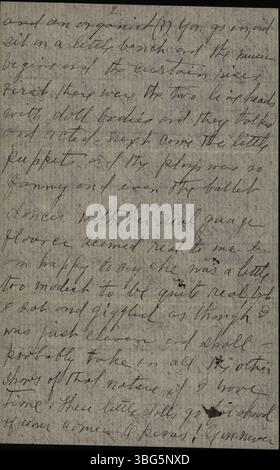 2
and an organist (?) You go in and
sit in a little bench and the music
begins and the curtain rises
First there were the two live heads
with doll bodies and they talked
and acted - next come the little
puppets and the plays was so
funny and even the ballet
dancer with her real guage
flounce seemed real to me I
am happy to say she was a little
too modest to be quite real, but
I sat and giggled as though I
was just eleven and shall -
probably take in all the other
shows of that nature if I have
time. These little dolls go ahead
of ever
alamy
Image ID: 3BG5NXD
www.alamy.com